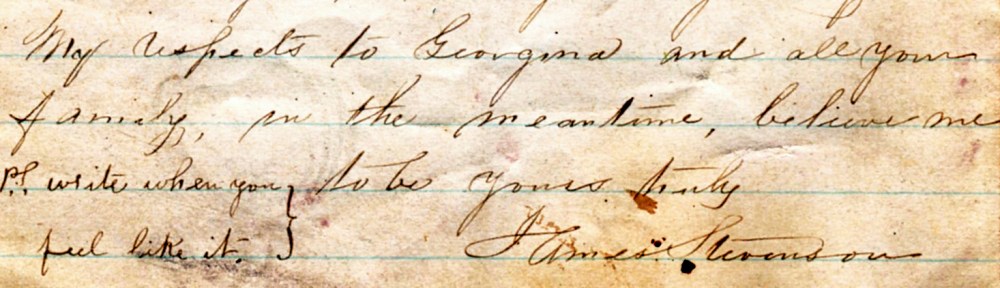 My respects to Georgina and all your
family, in the meantime, believe me
to be yours truly
P.S. write when you
feel like it.
James Stevenson